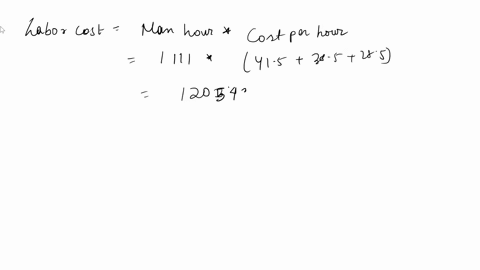 Labor cost = Man hour * Cost per hour
= 1111 * (41.5 + 38.5 + 28.5)
= 1205